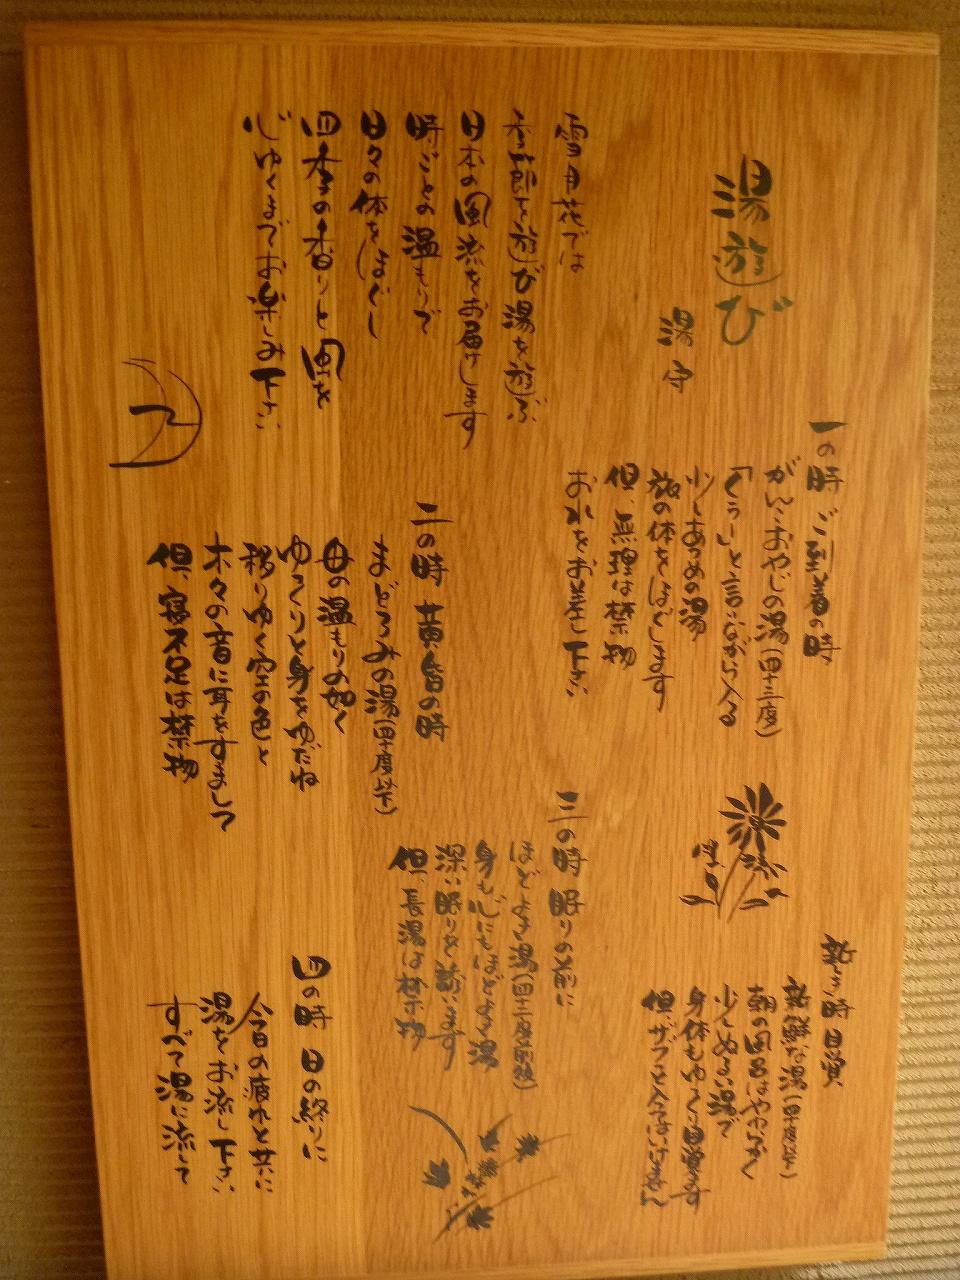 湯遊び
湯守
雪月花では
季節を遊び湯を遊ぶ
日本の風流をお届けします
時ごとの温もりで
日々の体をほぐし
四季の香りと風を
心ゆくまでお楽しみ下さい
一の時 ご到着の時
がんこおやじの湯(四十三度)
「くぅーいと言いながら入る
少しあつめの湯
旅の体をほぐします
但、無理は禁物
お水をお差し下さい
二の時 黄昏の時
まどろみの湯(四十度以下)
母の温もりの如く
ゆっくりと身をゆだね
移りゆく空の色と
木々の音に耳をすまして
但、寝不足は禁物
三の時 眠りの前に
ほどよき湯(四十二度前後)
身も心にもほどよき湯
深い眠りを誘います
但、長湯は禁物
四の時 日の終りに
今日の疲れと共に
湯をお流し下さい
すべて湯に流して
新しき時 目覚
新鮮な湯(四十度以下)
朝の風呂はやわらかく
少しぬるい湯で
身体もゆっくり目覚ます
但ザブと入ってはいけません